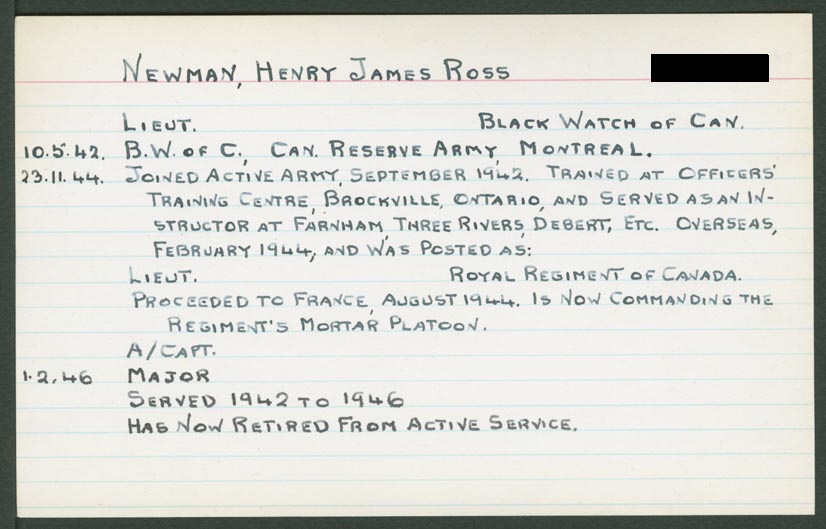 NEWMAN, HENRY JAMES ROSS
LIEUT. BLACK WATCH OF CAN.
10.5.42. B.W. OF C., CAN. RESERVE ARMY, MONTREAL.
23.11.44. JOINED ACTIVE ARMY, SEPTEMBER 1942. TRAINED AT OFFICERS'
TRAINING CENTRE, BROCKVILLE, ONTARIO, AND SERVED AS AN IN-
STRUCTOR AT FARNHAM, THREE RIVERS, DEBERT, ETC. OVERSEAS,
FEBRUARY 1944, AND WAS POSTED AS:
LIEUT. ROYAL REGIMENT OF CANADA.
PROCEEDED TO FRANCE, AUGUST 1944. IS NOW COMMANDING THE
REGIMENT'S MORTAR PLATOON.
A/CAPT.
1.2.46 MAJOR
SERVED 1942 TO 1946
HAS NOW RETIRED FROM ACTIVE SERVICE.